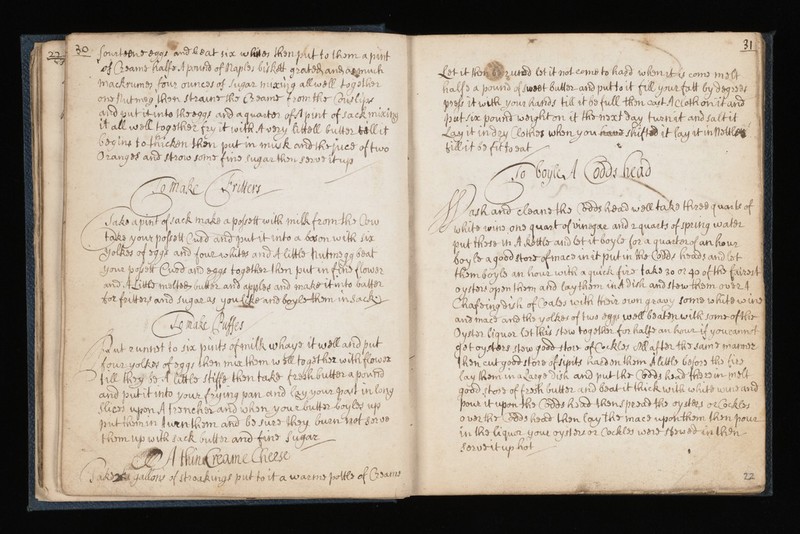 30
fourteene eggs and beat six whites then put to them a pint
of Creame halfe A pound of Naples biskett grated and as much
mackrumes four ounces of sugar mixing all well together
one Nutmeg then straine the Creame from the Couslips
and put it into the eggs and a quarter of A pint of sack mixing
it all well together fry it with A very littell butter till it
begins to thicken then put in musk and the juce of two
Oranges and strow some fine sugar then serve it up
To make Fritters
Take a pint of sack make a possett with milk from the Cow
take your possett Curd and put it into a bason with six
yolkes of eggs and four whites and A little Nutmegg beat
your possett Curd and eggs together then put in fine flower
and A little melted butter and apples and make it into batter
for fritters and sugar as you like and boyle them in sack
To make Puffes
Put runnet to six pints of milk whaye it well and put
four yolkes of eggs then mix them well together with flower
till they be A little stiffe then take fresh butter a pound
and put it into your frying pan and lay your past in long
slices upon A trencher and when your butter boyles up
put them in turn them and be sure they burn not serve
them up with sack butter and fine sugar
A thin Creame Cheese
Take gallons of stroakings put to it a warme pottle of Creame
31
Let it then be runed let it not come to hard when it is come melt
halfe a pound of sweet butter and put to it fill your fatt by degrees
press it with your hands till it be full then cast A Cloth on it and
set six pound weight on it the next day turn it and salt it
Lay it in dry Clothes when you have shifted it lay it in Nettles
till it be fit to eat
To boyle A Codds head
Wash and cleane the Codds head well take three quarts of
white wine one quart of vinegar and 2 quarts of spring water
put these in A kettle and let it boyle for a quarter of an hour
boyle a good store of mace in it put in the Codds heads and let
them boyle an hour with a quick fire take 30 or 40 of the fairest
oysters open them and lay them in A dish and stew them over A
Chafeingdish of Coales with their own gravy some white wine
and mace and the yolkes of two eggs well beaten with some of the
Oyster liquor let this stew together for halfe an hour if you cannot
get oysters stew good store of Cockles all after the same manner
then cut good store of sipits harden them A little before the fire
lay them in a Large dish and put the Codds head therein melt
good store of fresh butter and beat it thick with white wine and
pour it upon the Codds head then spread the oysters or Cockles
over the Codds head then lay the mace upon them then pour
in the liquor your oysters or Cockles were stewed in then
serve it up hot
22